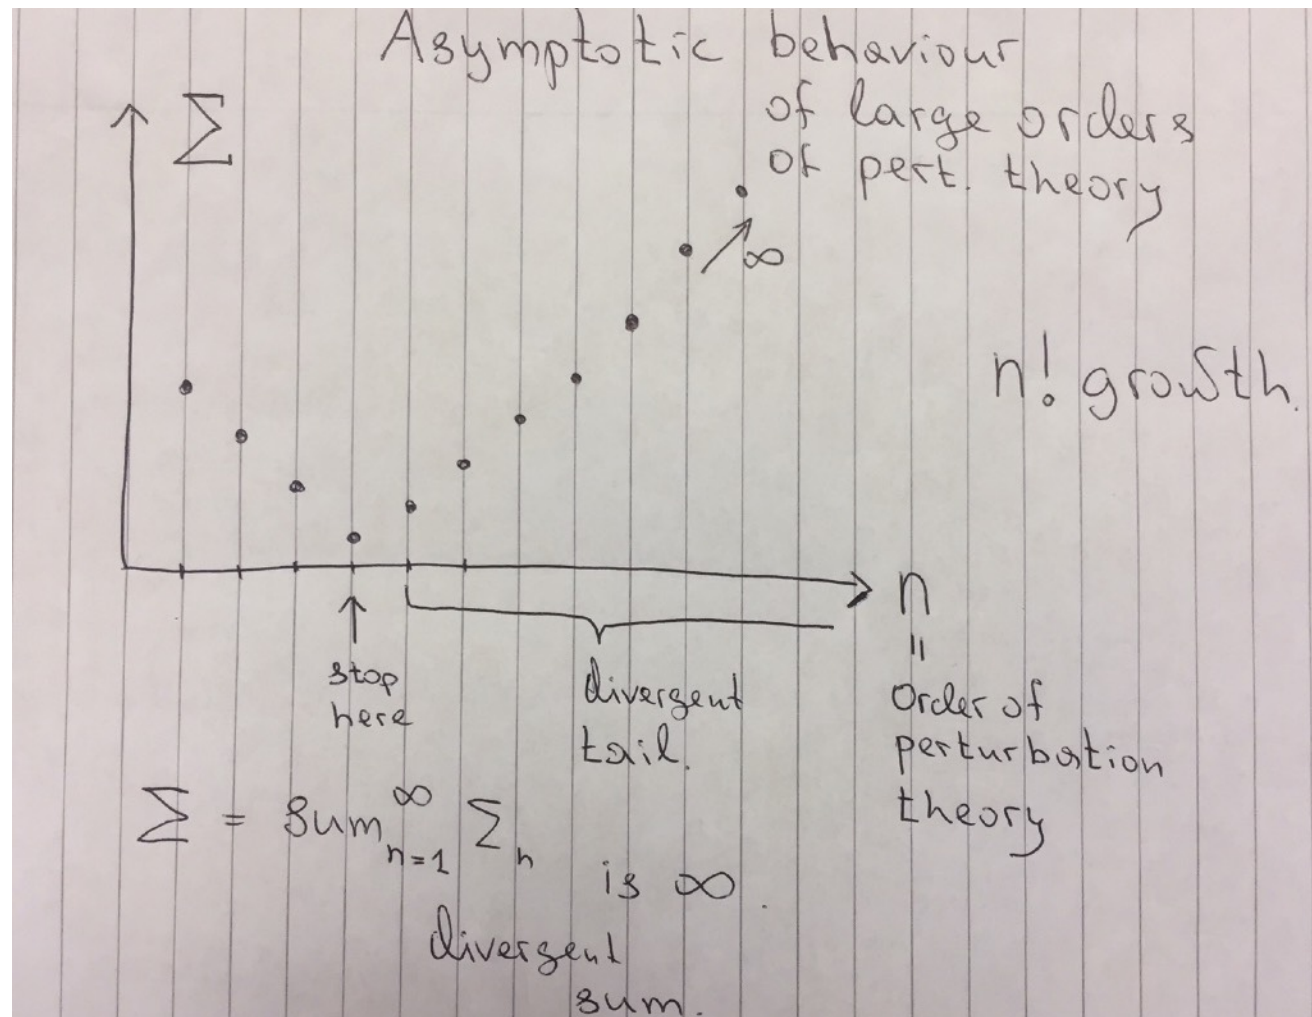 Asymptotic behaviour
of large orders
of pert. theory
Σ
∞
n! growth.
n
=
Order of
perturbation
theory
stop
here
divergent
tail.
Σ = Sum_{n=1}^{∞} Σ_n is ∞.
divergent
sum.